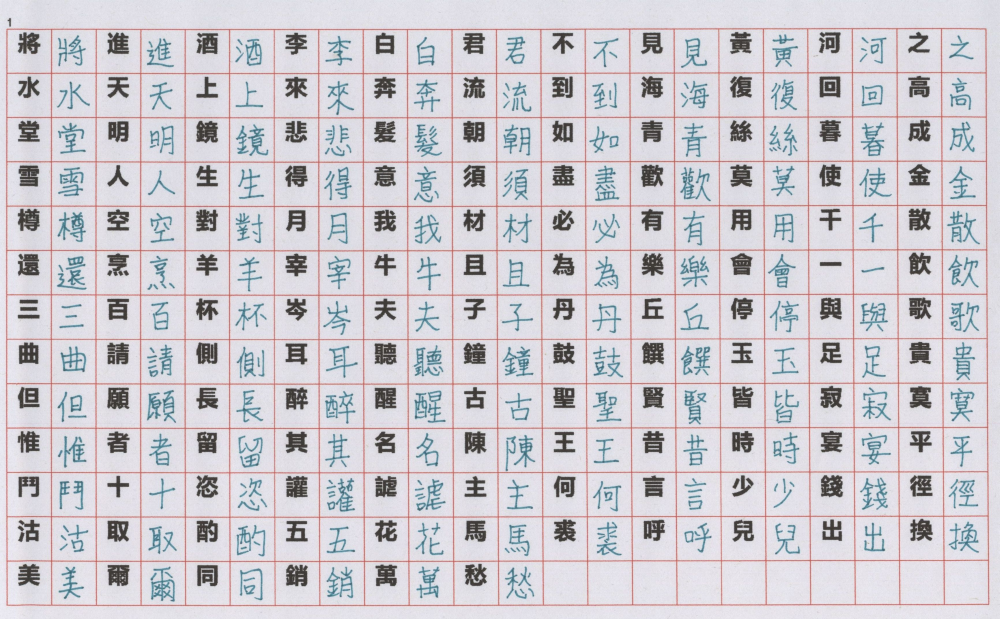 1
將 將 進 進 酒 酒 李 李 白 白 君 君 不 不 見 見 黃 黃 河 河 之 之
水 水 天 天 上 上 來 來 奔 奔 流 流 到 到 海 海 復 復 回 回 高 高
堂 堂 明 明 鏡 鏡 悲 悲 髮 髮 朝 朝 如 如 青 青 絲 絲 暮 暮 成 成
雪 雪 人 人 生 生 得 得 意 意 須 須 盡 盡 歡 歡 莫 莫 使 使 金 金
樽 樽 空 空 對 對 月 月 我 我 材 材 必 必 有 有 用 用 千 千 散 散
還 還 烹 烹 羊 羊 宰 宰 牛 牛 且 且 為 為 樂 樂 會 會 一 一 飲 飲
三 三 百 百 杯 杯 岑 岑 夫 夫 子 子 丹 丹 丘 丘 停 停 與 與 歌 歌
曲 曲 請 請 側 側 耳 耳 聽 聽 鐘 鐘 鼓 鼓 饌 饌 玉 玉 足 足 貴 貴
但 但 願 願 長 長 醉 醉 醒 醒 古 古 聖 聖 賢 賢 皆 皆 寂 寂 寞 寞
惟 惟 者 者 留 留 其 其 名 名 陳 陳 王 王 昔 昔 時 時 宴 宴 平 平
鬥 鬥 十 十 恣 恣 讙 讙 謔 謔 主 主 何 何 言 言 少 少 錢 錢 徑 徑
沽 沽 取 取 酌 酌 五 五 花 花 馬 馬 裘 裘 呼 呼 兒 兒 出 出 換 換
美 美 爾 爾 同 同 銷 銷 萬 萬 愁 愁